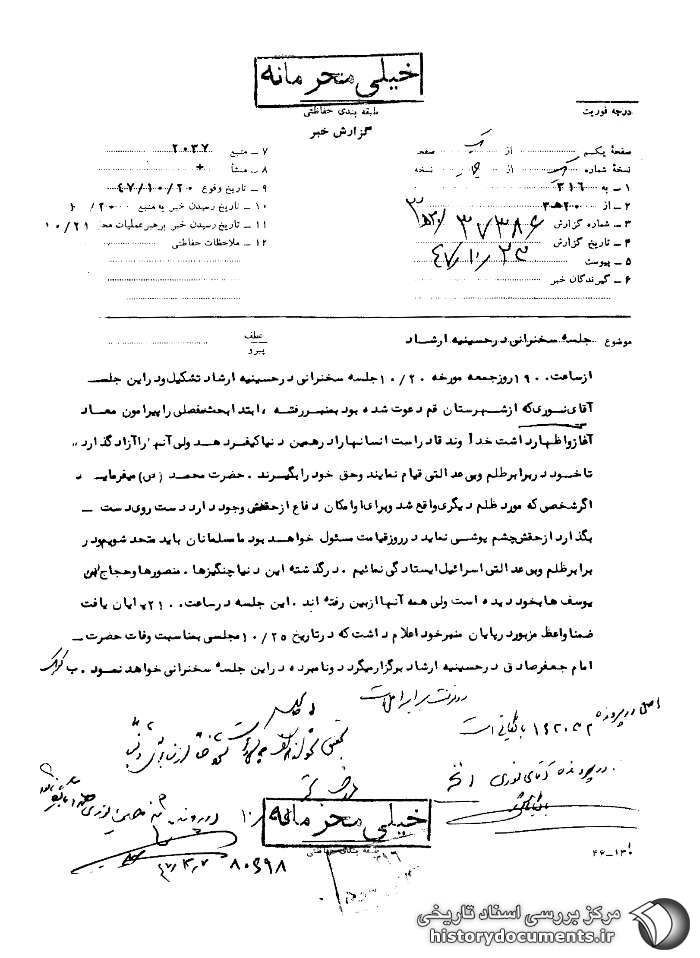 خیلی محرمانه
طبقه بندی حفاظتی
درجه فوریت
گزارش خبر
صفحهٔ یکم از یک صفحه
نسخهٔ شماره از نسخه
۱ ـ به ۳۱۶
۲ ـ از ۲۰ه۳
۳ ـ شماره گزارش ۳۷۳۸۶/۲۰ه۳
۴ ـ تاریخ گزارش ۴۷/۱۰/۲۳
۵ ـ پیوست
۶ ـ گیرندگان خبر
۷ ـ منبع ۲۰۳۷
۸ ـ منشأ
۹ ـ تاریخ وقوع ۴۷/۱۰/۲۰
۱۰ ـ تاریخ رسیدن خبر به منبع ۲۰/
۱۱ ـ تاریخ رسیدن خبر برهبر عملیات محل ۱۰/۲۱
۱۲ ـ ملاحظات حفاظتی
موضوع جلسه سخنرانی در حسینیه ارشاد
عطف
پیرو
از ساعت ۱۹۰۰ روز جمعه مورخه ۱۰/۲۰ جلسه سخنرانی در حسینیه ارشاد تشکیل و در این جلسه
آقای نوری که از شهرستان قم دعوت شده بود بمنبر رفته ، ابتدا بحث مفصلی را پیرامون معاد
آغاز و اظهار داشت خداوند قادر است انسانها را در همین دنیا کیفر دهد ولی آنها را آزاد گذارده
تا خود در برابر ظلم و بی عدالتی قیام نمایند و حق خود را بگیرند . حضرت محمد (ص) میفرماید
اگر شخصی که مورد ظلم دیگری واقع شد و برای او امکان دفاع از حقش وجود دارد دست روی دست ـ
بگذارد از حقش چشم پوشی نماید در روز قیامت مسئول خواهد بود ما مسلمانان باید متحد شویم و در
برابر ظلم و بی عدالتی اسرائیل ایستادگی نمائیم . در گذشته این دنیا چنگیزها ، منصورها و حجاج بن
یوسف ها بخود دیده است ولی همه آنها از بین رفته اند . این جلسه در ساعت ۲۱۰۰ پایان یافت
ضمنا واعظ مزبور در پایان منبر خود اعلام داشت که در تاریخ ۱۰/۲۵ مجلسی بمناسبت وفات حضرت ـ
امام جعفر صادق در حسینیه ارشاد برگزار میگردد و نامبرده در این جلسه سخنرانی خواهد نمود . ب
اصل در پرونده ۱۶۲۰۳۲ بایگانی است
در پرونده آقای نوری
خیلی محرمانه
طبقه بندی حفاظتی
۳۱۶
۸۰۶۹۸
۴۶-۱۳۰
مرکز بررسی اسناد تاریخی
historydocuments.ir